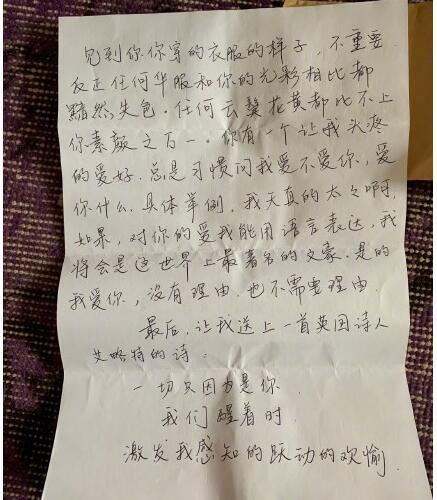 见到你.你穿的衣服的样子，不重要.
反正任何华服和你的光彩相比都
黯然失色.任何云鬓花黄都比不上
你素颜之万一.你有一个让我头疼
的爱好.总是习惯问我爱不爱你,爱
你什么.具体举例.我天真的太太啊,
如果,对你的爱我能用语言表达,我
将会是这世界上最著名的文豪.是的
我爱你,没有理由.也不需要理由.
最后,让我送上一首英国诗人
艾略特的诗:
一切只因为是你.
我们醒着时.
激发我感知的跃动的欢愉.